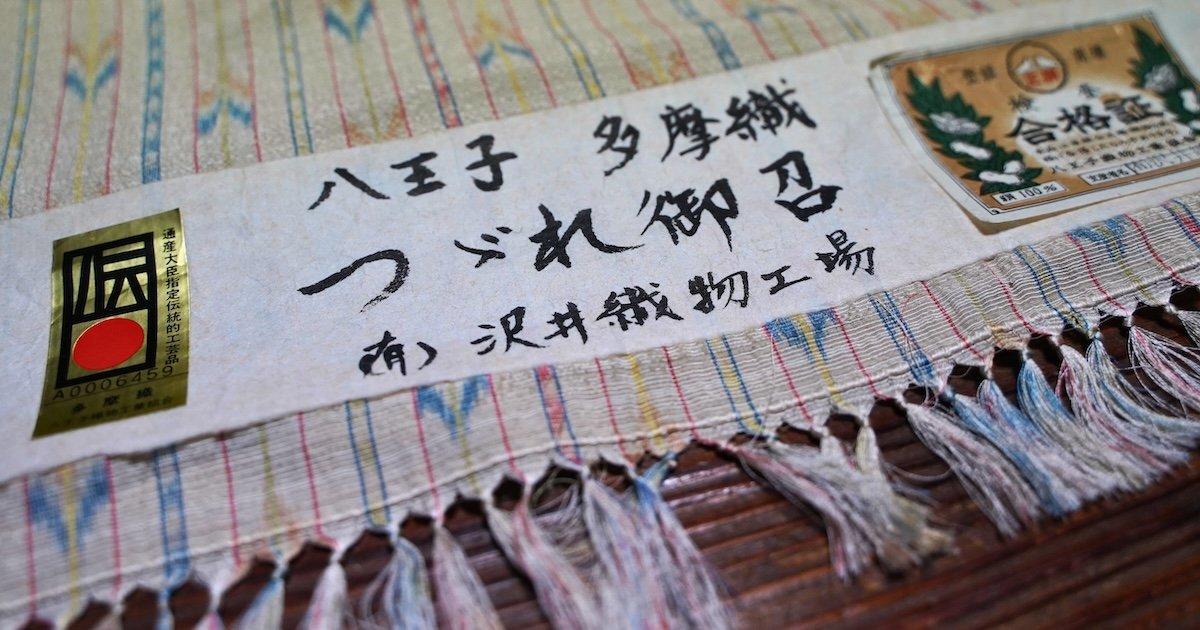 八王子 多摩織
つゞれ御召
(有)沢井織物工場
伝
通産大臣指定伝統的工芸品
A0006459
多摩織
登録
検査
合格証
絹100%